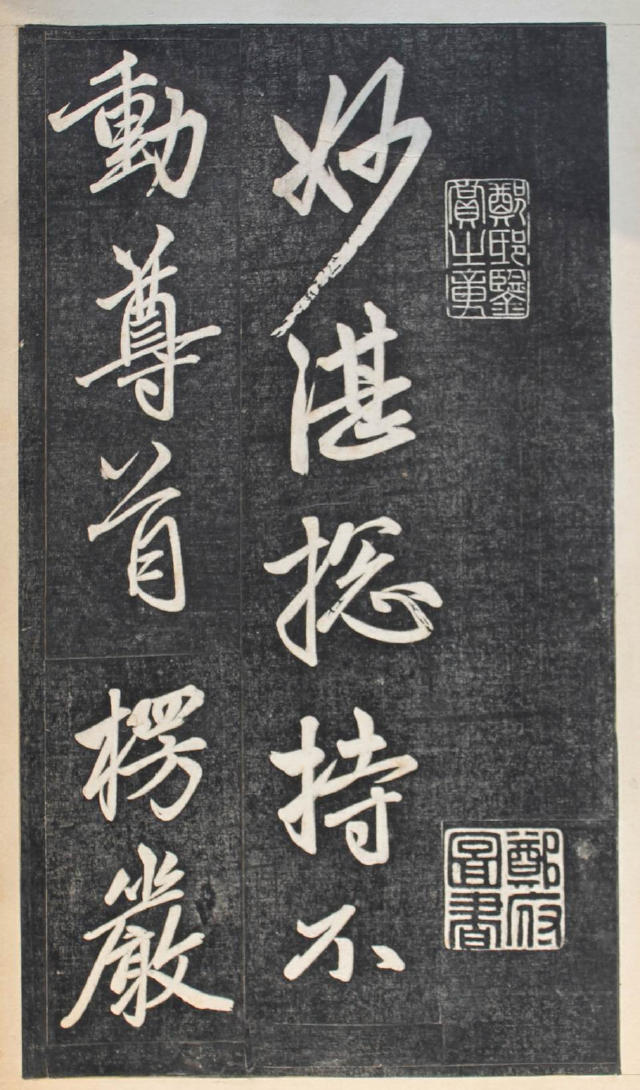 鄭邸鑒賞之章
鄭府圖書
妙湛揔持不
動尊首楞嚴